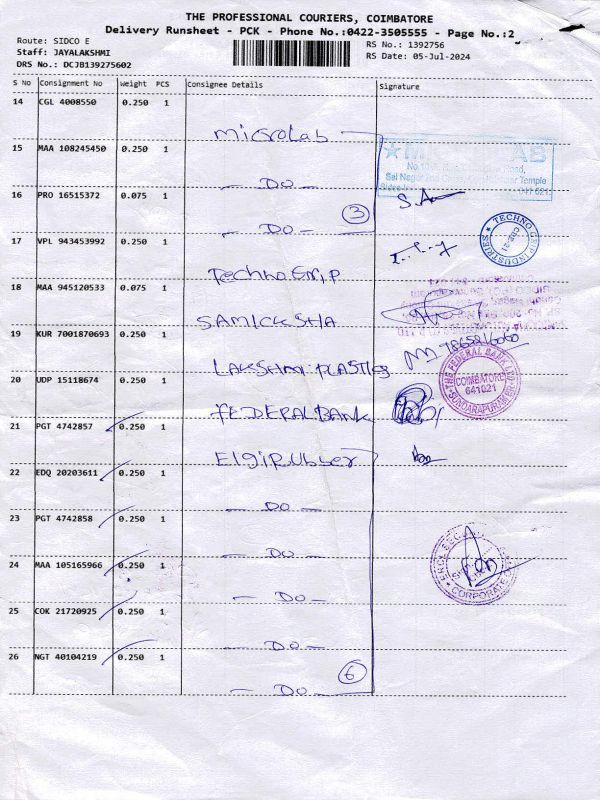 THE PROFESSIONAL COURIERS, COIMBATORE
Delivery Runsheet - PCK - Phone No.:0422-3505555 - Page No.:2
Route: SIDCO E
Staff: JAYALAKSHMI
DRS No.: DCJB139275602
RS No.: 1392756
RS Date: 05-Jul-2024
S No Consignment No Weight PCS Consignee Details Signature
14 CGL 4008550 0.250 1 Microlab
15 MAA 108245450 0.250 1 - DO -
16 PRO 16515372 0.075 1 - DO - 3
17 VPL 943453992 0.250 1 Techno Grip
TECHNO GRIP INDUSTRIES
CBE-21
18 MAA 945120533 0.075 1 SAMICKSHA
19 KUR 7001870693 0.250 1 LAKSHMI PLASTICS
20 UDP 15118674 0.250 1 FEDERAL BANK
THE FEDERAL BANK LTD
COIMBATORE
641021
SUNDARAPURAM
21 PGT 4742857 0.250 1 Elgi Rubber
22 EDQ 20203611 0.250 1 - DO -
23 PGT 4742858 0.250 1 - DO -
24 MAA 105165966 0.250 1 - DO -
CORPORATE
25 COK 21720925 0.250 1 - DO -
26 NGT 40104219 0.250 1 - DO - 6